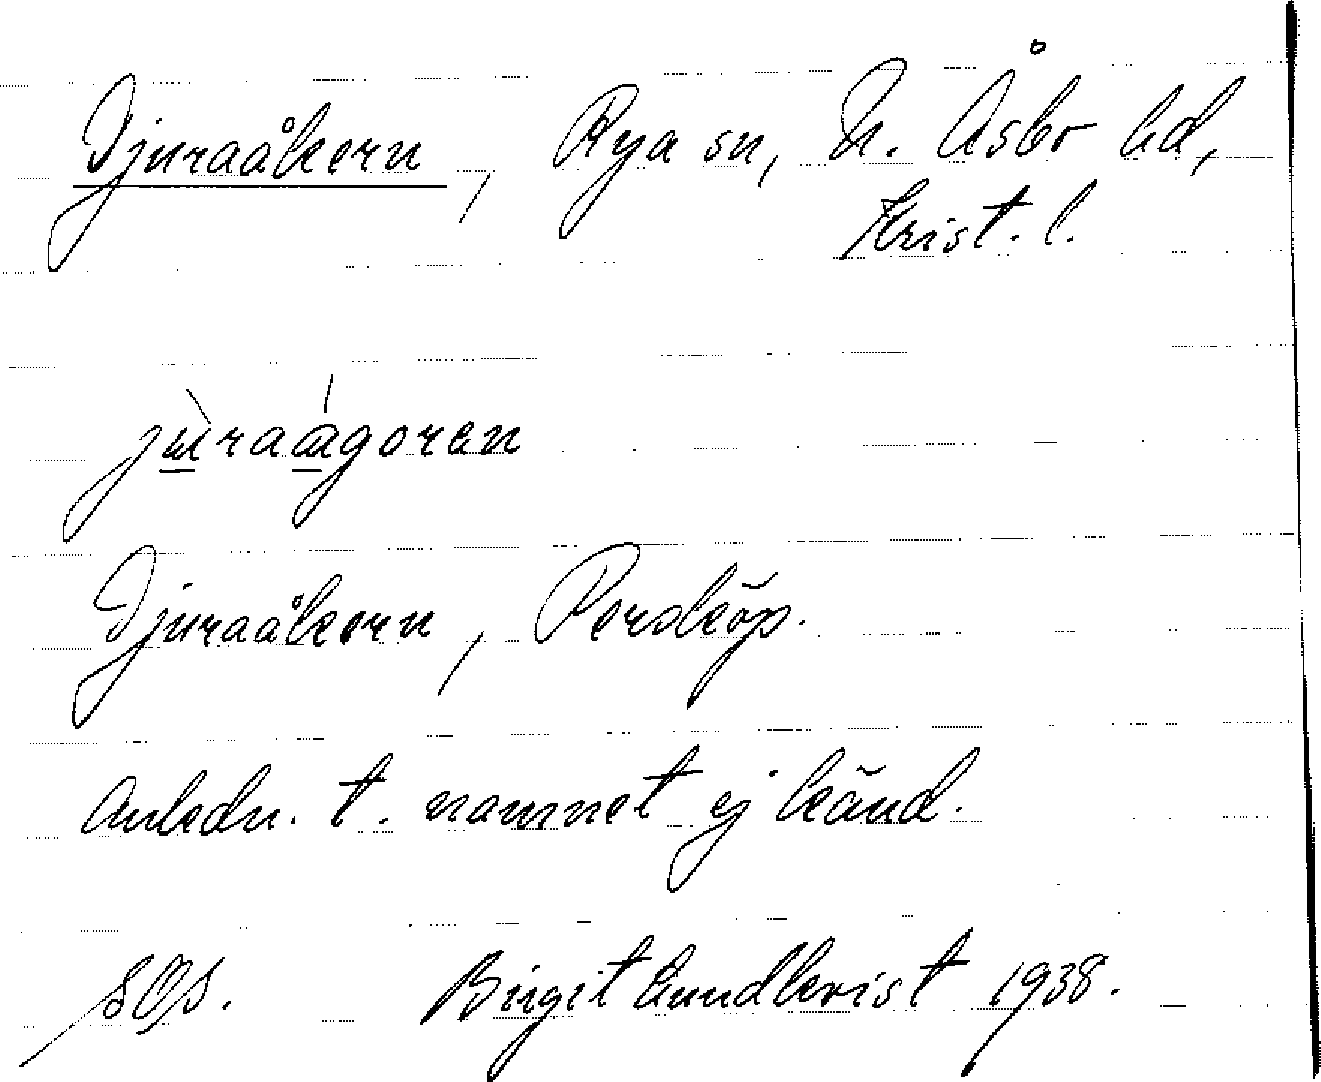 Djuraåkern, Rya sn, N. Åsbo hd,
Krist. l.
jùraágoren
Djuraåkern, Persköp.
Anledn. t. namnet ej känd.
Birgit Lundkvist 1938.